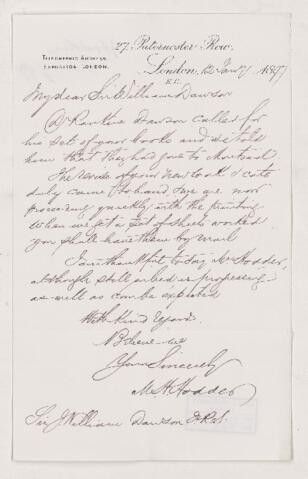 27, Paternoster Row,
TELEGRAPHIC ADDRESS,
EXPOSITOR LONDON.
London, 12 Jany 1897
E.C.
My dear Sir William Dawson
Dr Rankine Dawson called for
his set of your books and we told
him that they had gone to Montreal.
The revise of your new book
duly came to hand & we are now
proceeding quickly with the printing
When we get a set of sheets worked
you shall have them by mail
I am thankful to say Mrs Hodder,
although still in bed is progressing
as well as can be expected
With kind regards
Believe me
Yours Sincerely
M H Hodder
Sir J. William Dawson F.R.S.